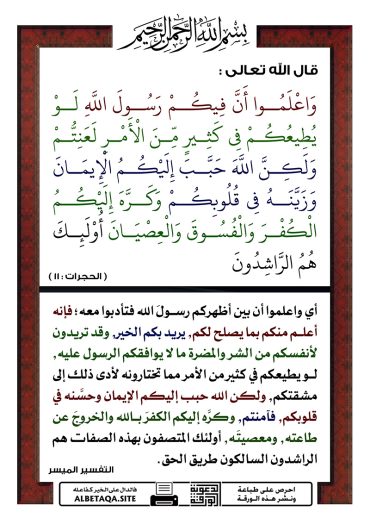 بِسْمِ اللَّهِ الرَّحْمَنِ الرَّحِيمِ
قال الله تعالى :
وَاعْلَمُوا أَنَّ فِيكُمْ رَسُولَ اللَّهِ لَوْ
يُطِيعُكُمْ فِي كَثِيرٍ مِّنَ الْأَمْرِ لَعَنِتُّمْ
وَلَكِنَّ اللَّهَ حَبَّبَ إِلَيْكُمُ الْإِيمَانَ
وَزَيَّنَهُ فِي قُلُوبِكُمْ وَكَرَّهَ إِلَيْكُمُ
الْكُفْرَ وَالْفُسُوقَ وَالْعِصْيَانَ أُوْلَئِكَ
هُمُ الرَّاشِدُونَ
( الحجرات : ١١ )
أي واعلموا أن بين أظهركم رسولَ الله فتأدبوا معه ؛ فإنه
أعلم منكم بما يصلح لكم, يريد بكم الخير, وقد تريدون
لأنفسكم من الشر والمضرة ما لا يوافقكم الرسول عليه ,
لو يطيعكم في كثير من الأمر مما تختارونه لأدى ذلك إلى
مشقتكم, ولكن الله حبب إليكم الإيمان وحسَّنه في
قلوبكم, فآمنتم, وكرَّه إليكم الكفرَ بالله والخروجَ عن
طاعته, ومعصيتَه, أولئك المتصفون بهذه الصفات هم
الراشدون السالكون طريق الحق.
التفسير الميسر
احرص على طباعة
ونشر هذه الورقة
لدعوتك
الورقة
فالدال على الخير كفاعله
ALBETAQA.SITE